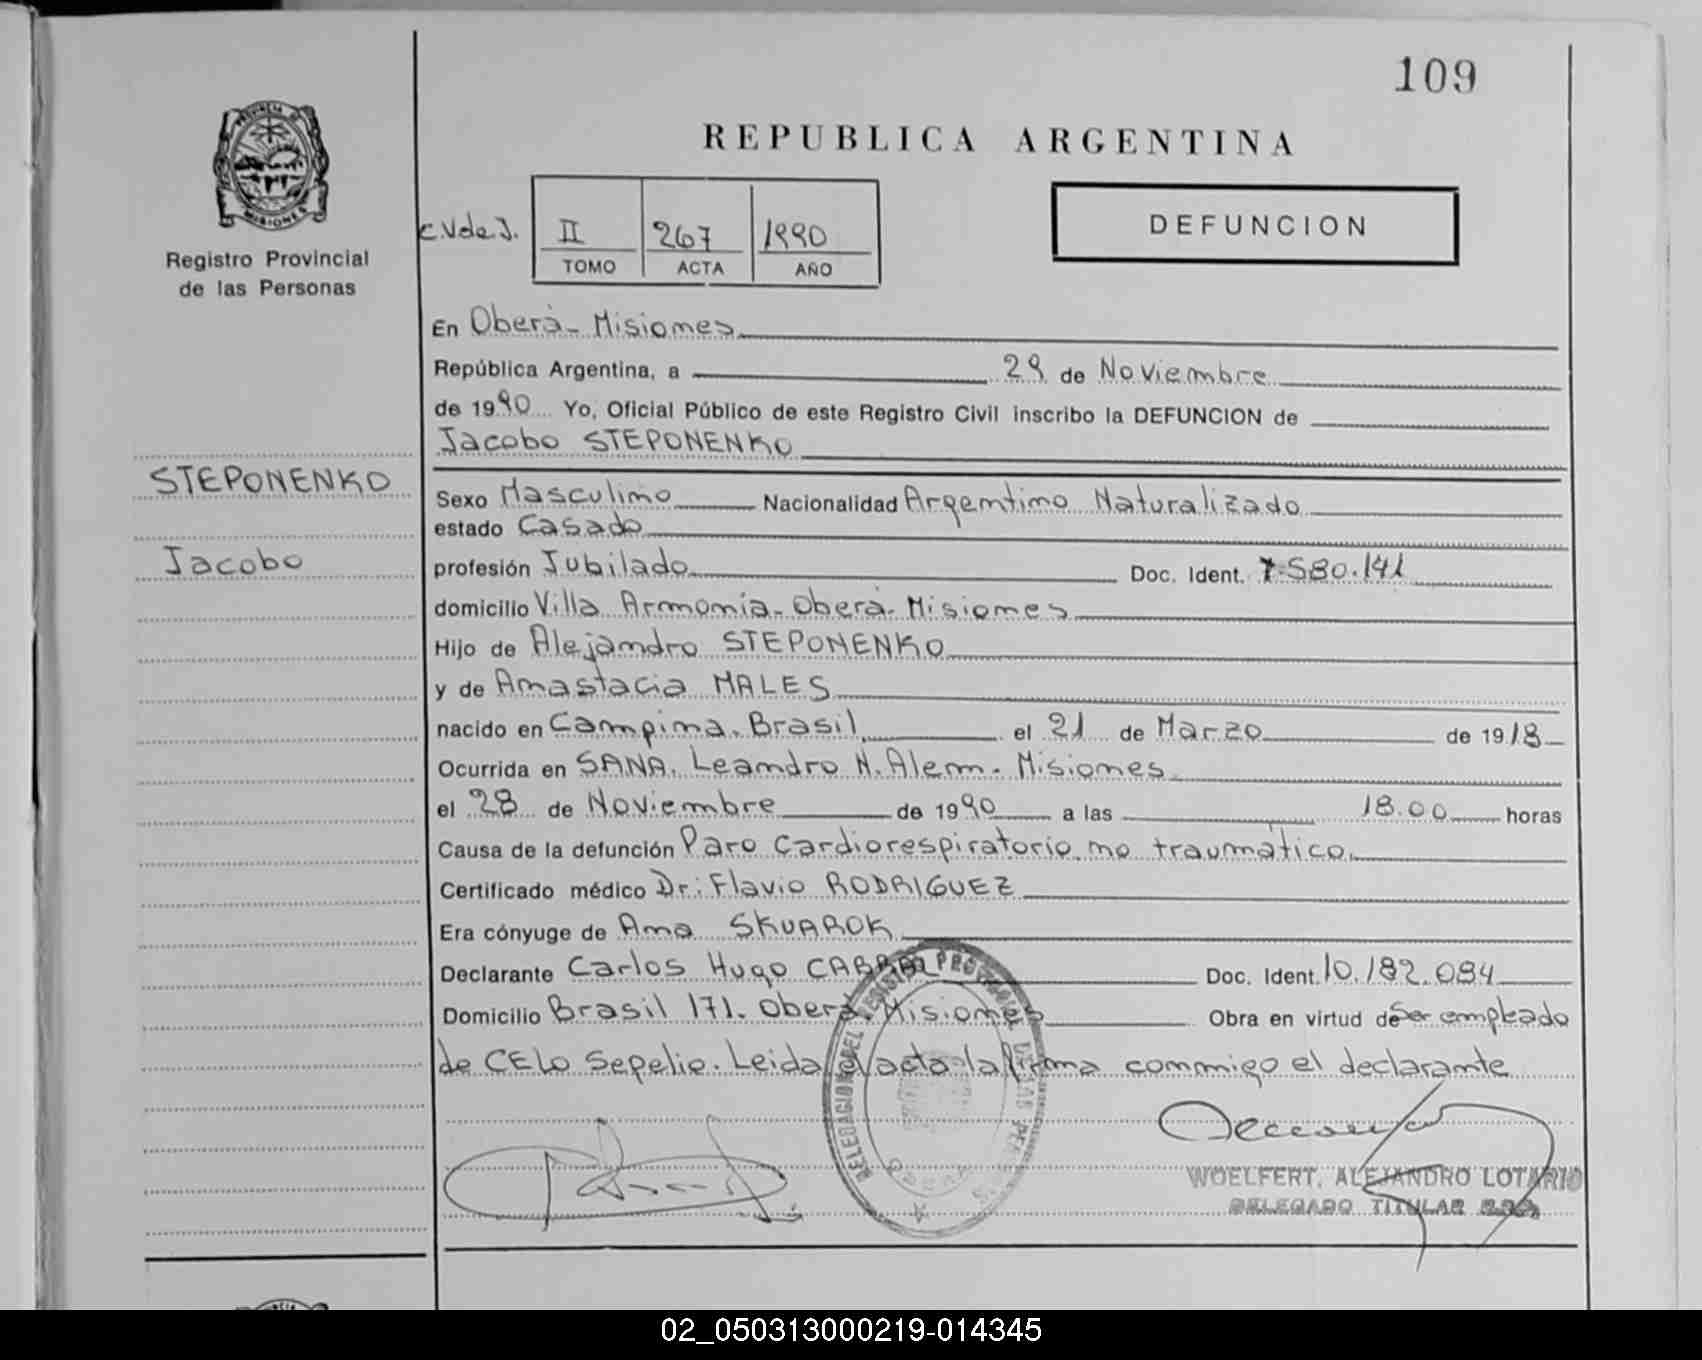 109
PROVINCIA DE
MISIONES
Registro Provincial
de las Personas
REPUBLICA ARGENTINA
DEFUNCION
C.V de J. II 267 1990
TOMO ACTA AÑO
En Oberá - Misiones
República Argentina, a 29 de Noviembre
de 1990 Yo, Oficial Público de este Registro Civil inscribo la DEFUNCION de
Jacobo STEPONENKO
STEPONENKO
Jacobo
Sexo Masculino Nacionalidad Argentino Naturalizado
estado Casado
profesión Jubilado Doc. Ident. 7.580.141
domicilio Villa Armonía - Oberá - Misiones
Hijo de Alejandro STEPONENKO
y de Anastacia MALES
nacido en Campina, Brasil, el 21 de Marzo de 1918
Ocurrida en SANA. Leandro N. Alem - Misiones
el 28 de Noviembre de 1990 a las 18.00 horas
Causa de la defunción Paro Cardiorespiratorio no traumático,
Certificado médico Dr: Flavio RODRIGUEZ
Era cónyuge de Ana SKUAROK
Declarante Carlos Hugo CABRAL Doc. Ident. 10.182.084
Domicilio Brasil 171. Oberá. Misiones Obra en virtud de Ser empleado
de CELO Sepelio. Leida el acta la firma conmigo el declarante
DELEGACION DEL REGISTRO PROVINCIAL DE LAS PERSONAS
WOELFERT, ALEJANDRO LOTARIO
DELEGADO TITULAR
02_050313000219-014345